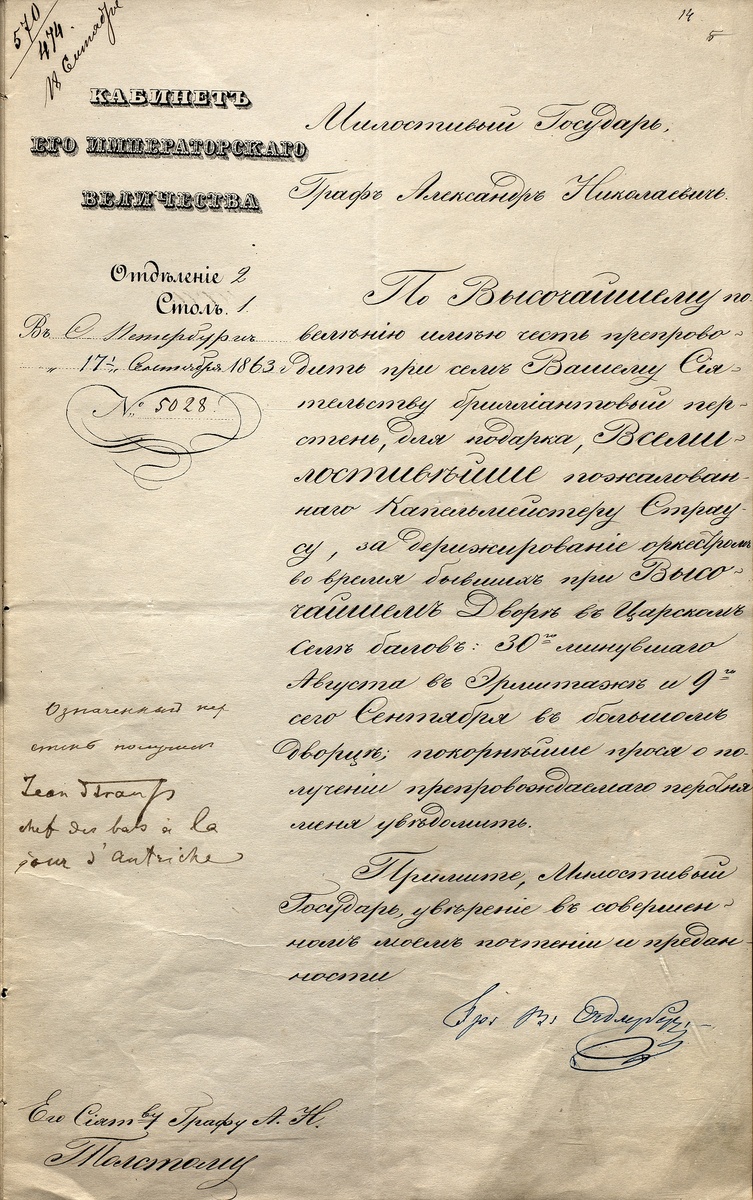 14
570
474
18 Сентабре
КАБИНЕТЪ
ЕГО ИМПЕРАТОРСКАГО
ВЕЛИЧЕСТВА
Отдѣленіе 2
Столъ. 1
Въ С Петербургѣ
„ 17 „ Сентября 1863 г
№ 5028
Милостивый Государь,
Графъ Александръ Николаевичъ.
По Высочайшему по-
велѣнію имѣю честь препрово-
дить при семъ Вашему Сія-
тельству брилліантовый пер-
стень, для подарка, Всеми-
лостивѣйше пожалован-
наго Капельмейстеру Страу-
су, за дерижированіе оркестромъ
во время бывшихъ при Высо-
чайшемъ Дворѣ въ Царскомъ
Селѣ баловъ: 30го минувшаго
Августа въ Эрмитажѣ и 9го
сего Сентября въ большомъ
Дворцѣ; покорнѣйше прося о по-
лученіи препровождаемаго перстня
меня увѣдомить.
Примите, Милостивый
Государь, увѣреніе въ совершен-
номъ моемъ почтеніи и предан-
ности
Гр. В. Адлербергъ
Означенный пер
стень получилъ
Jean Strauss
chef des bals à la
cour d'Autriche
Его Сіятву Графу А. Н.
Толстому